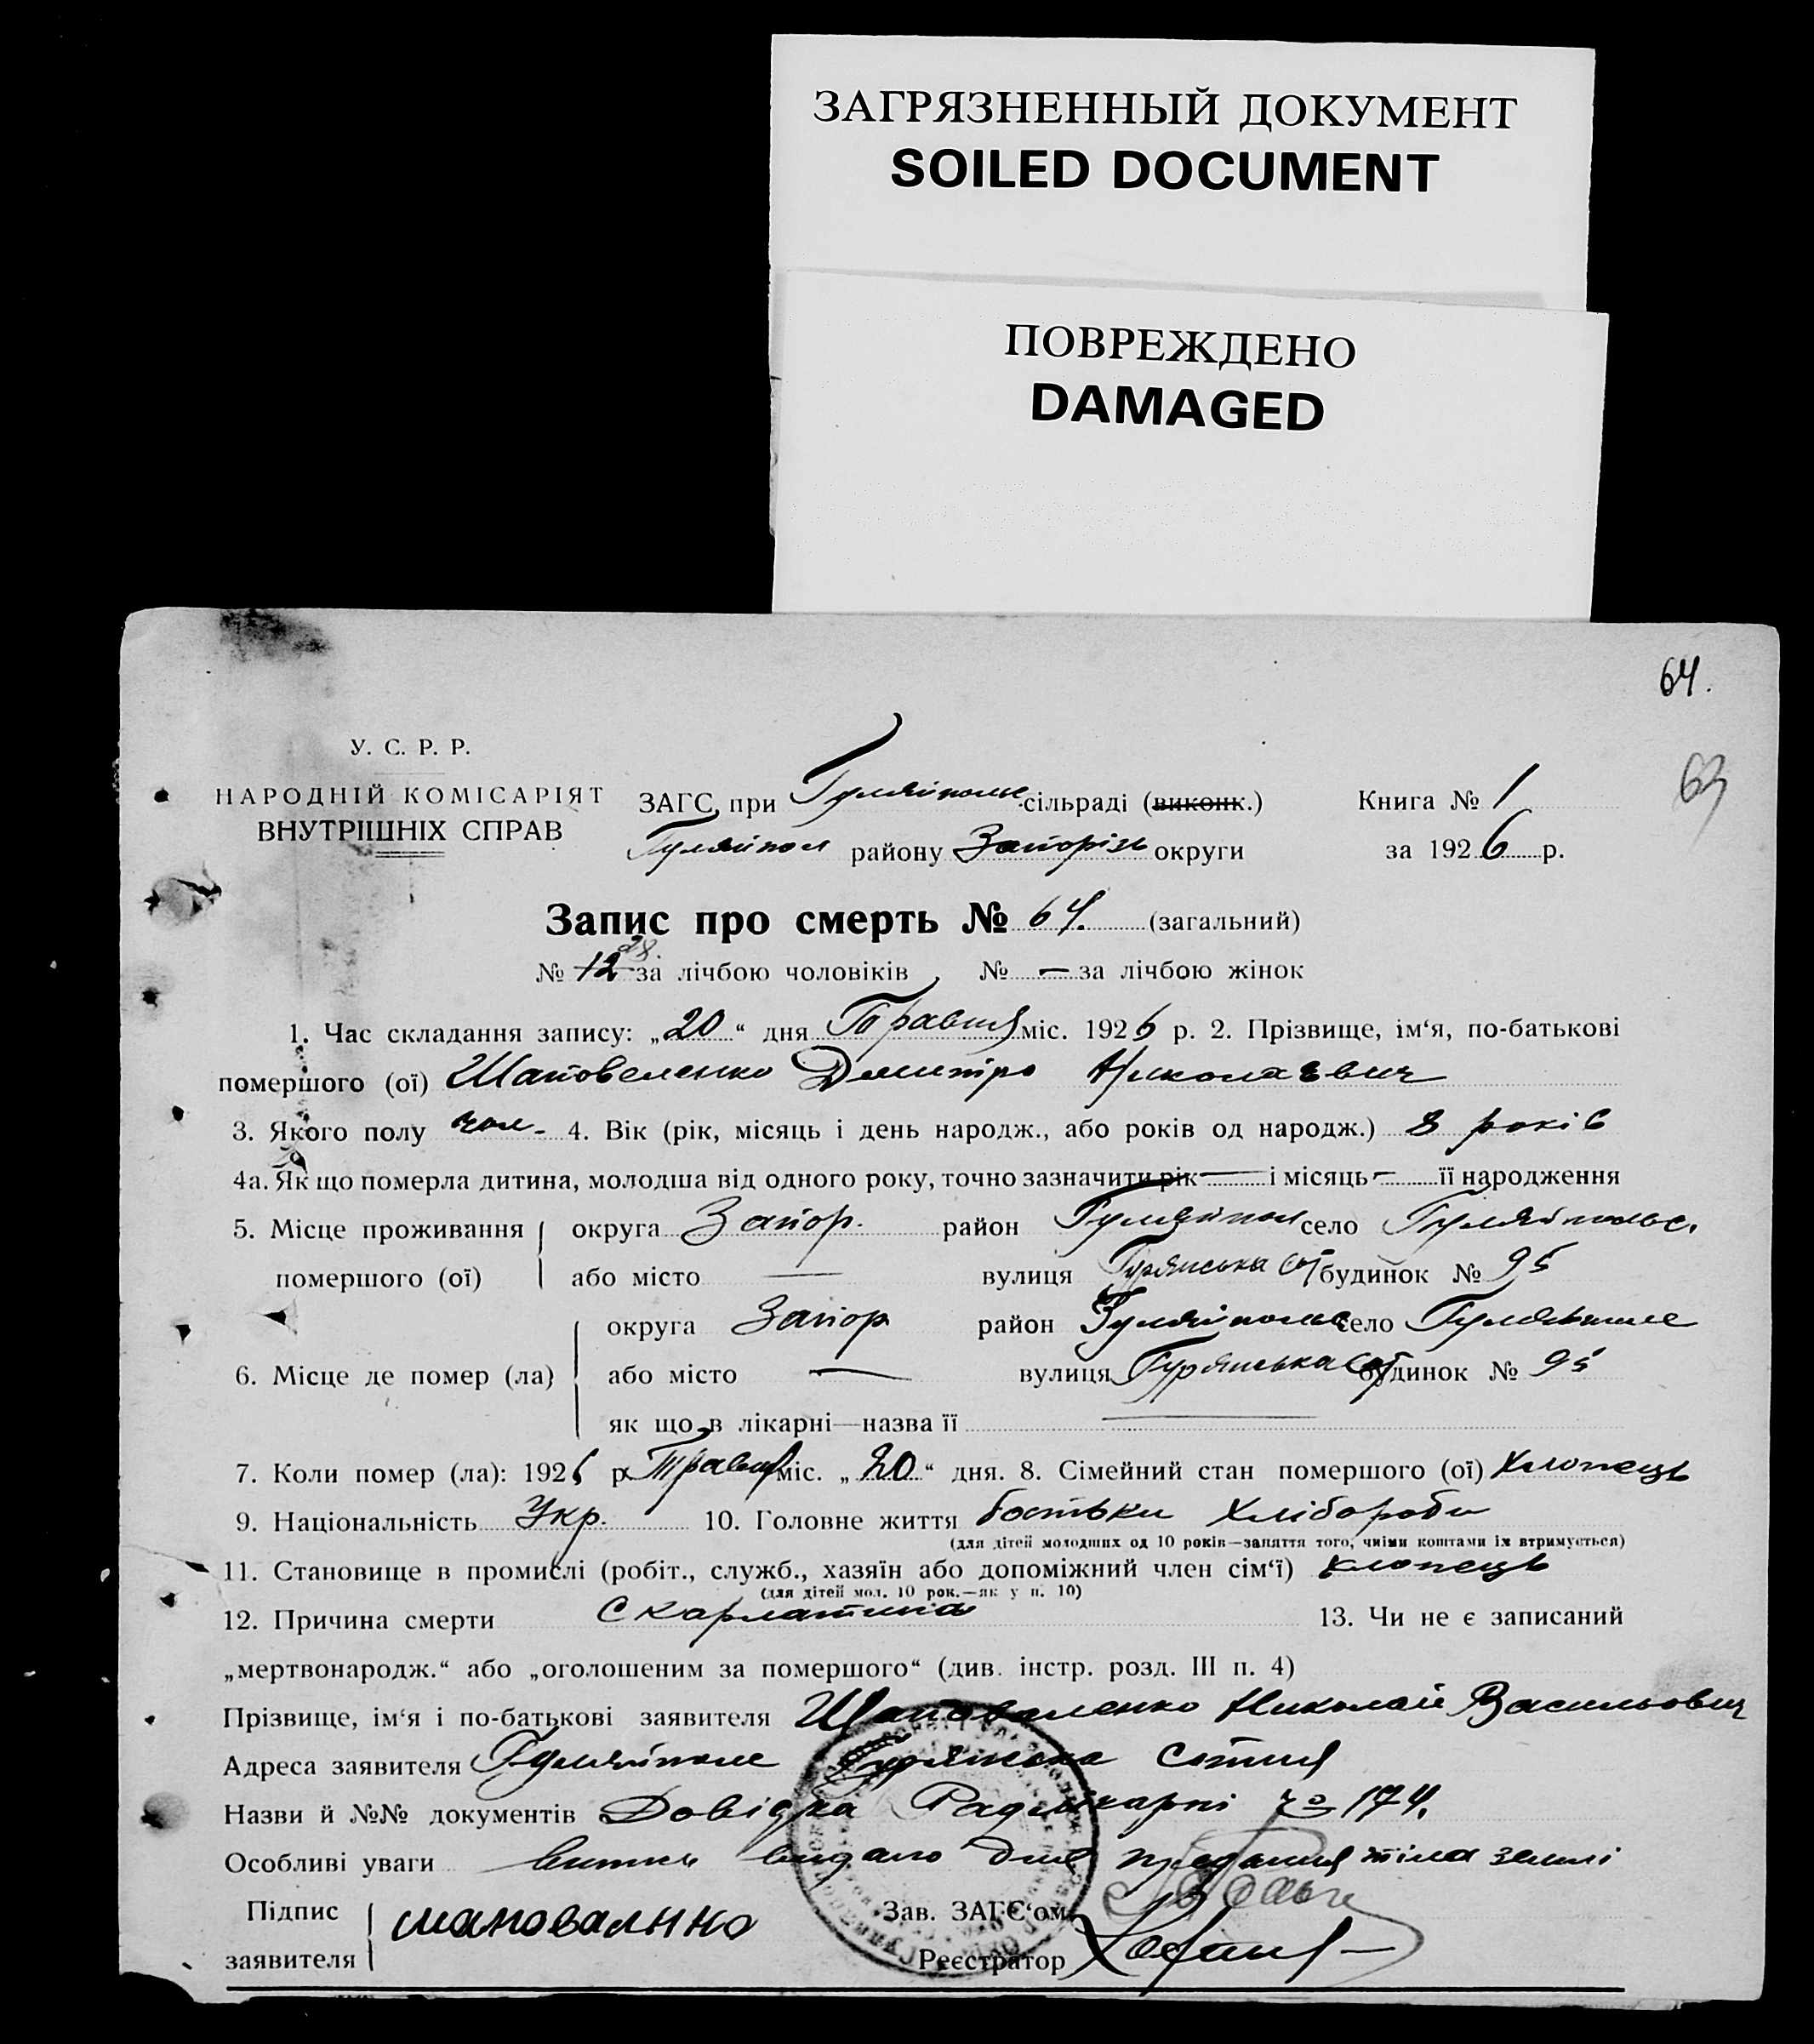 ЗАГРЯЗНЕННЫЙ ДОКУМЕНТ
SOILED DOCUMENT
ПОВРЕЖДЕНО
DAMAGED
64.
63
У. С. Р. Р.
НАРОДНІЙ КОМІСАРІЯТ
ВНУТРІШНІХ СПРАВ
ЗАГС при Гуляйпольс. сільраді (виконк.) Книга № 1
Гуляйпол району Запорізь округи за 1926 р.
Запис про смерть № 64. (загальний)
№ 12 28. за лічбою чоловіків, № — за лічбою жінок
1. Час складання запису: „20“ дня Травня міс. 1926 р. 2. Прізвище, ім‘я, по-батькові
помершого (ої) Шаповаленко Дмитро Николаєвич
3. Якого полу чол. 4. Вік (рік, місяць і день народж., або років од народж.) 8 років
4а. Як що померла дитина, молодша від одного року, точно зазначити рік — і місяць — її народження
5. Місце проживання округа Запор. район Гуляйпол село Гуляйпольс.
помершого (ої) або місто — вулиця будинок № 95
округа Запор район Гуляйпольс село Гуляйполе
6. Місце де помер (ла) або місто — вулиця будинок № 95
як що в лікарні—назва її —
7. Коли помер (ла): 1926 р. Травня міс. „20“ дня. 8. Сімейний стан помершого (ої) Хлопець
9. Національність Укр. 10. Головне життя батьки Хлібороби
(для дітей молодших од 10 років—заняття того, чиїми коштами їх втримується)
11. Становище в промислі (робіт., служб., хазяїн або допоміжний член сім‘ї) хлопець
(для дітей мол. 10 рок.—як у п. 10)
12. Причина смерти Скарлатина 13. Чи не є записаний
„мертвонародж.“ або „оголошеним за помершого“ (див. інстр. розд. III п. 4)
Прізвище, ім‘я і по-батькові заявителя Шаповаленко Николай Васильович
Адреса заявителя Гуляйполе Сотня
Назви й №№ документів Довідка Радлікарні 174.
Особливі уваги витяг видано для предания тіла землі
Підпис
заявителя шаповалнко
Зав. ЗАГС‘ом
Реєстратор